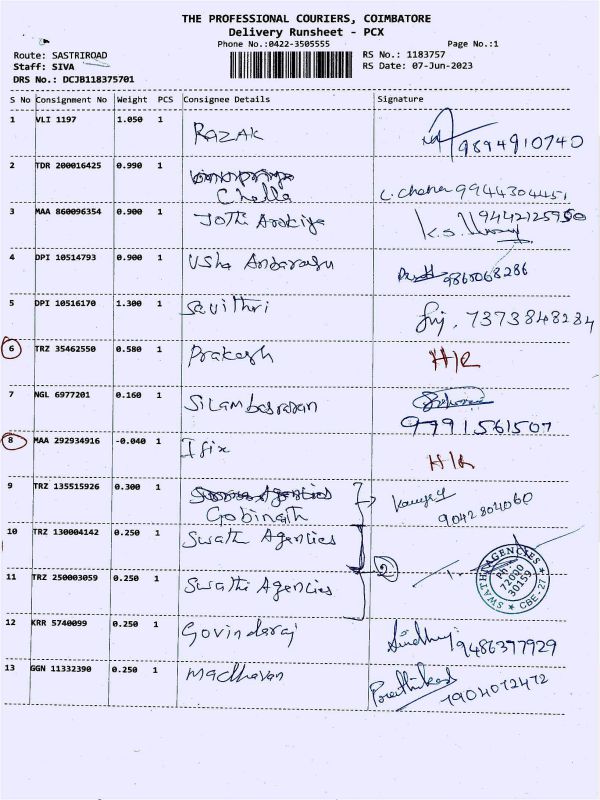 THE PROFESSIONAL COURIERS, COIMBATORE
Delivery Runsheet - PCX
Phone No.:0422-3505555 Page No.:1
Route: SASTRIROAD RS No.: 1183757
Staff: SIVA RS Date: 07-Jun-2023
DRS No.: DCJB118375701
S No Consignment No Weight PCS Consignee Details Signature
1 VLI 1197 1.050 1 RAZAK 9894910740
2 TDR 200016425 0.990 1 Chella 9944304451
3 MAA 860096354 0.900 1 Jothi Arokiya 9442125950
4 DPI 10514793 0.900 1 Usha 9865068286
5 DPI 10516170 1.300 1 Savithri 7373848284
6 TRZ 35462550 0.580 1 Prakash H/R
7 NGL 6977201 0.160 1 Silambarasan
9991561507
8 MAA 292934916 -0.040 1 Ifix H/R
9 TRZ 135515926 0.300 1 Gobinath 9042804060
10 TRZ 130004142 0.250 1 Swathi Agencies
11 TRZ 250003059 0.250 1 Swathi Agencies 2
SWATHI AGENCIES
PH:
72000
30159
CBE-27
12 KRR 5740099 0.250 1 Govindaraj Sindhuj 9486377929
13 GGN 11332390 0.250 1 Madhavan